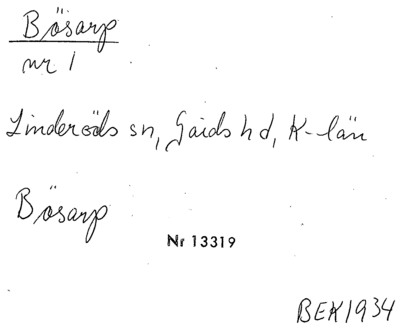 Bösarp
nr 1
Linderöds sn, Gärds hd, K-län
Bösarp
Nr 13319
BEK 1934